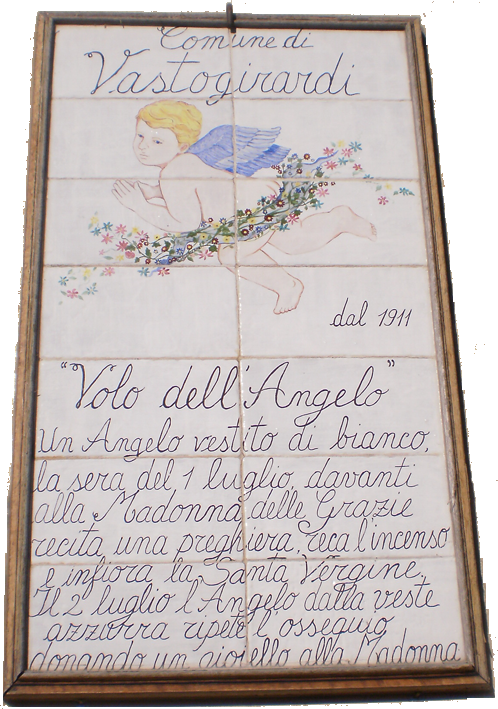 Comune di
Vastogirardi
dal 1911
"Volo dell'Angelo"
Un Angelo vestito di bianco,
la sera del 1 luglio, davanti
alla Madonna delle Grazie
recita una preghiera, reca l'incenso
e infiora la Santa Vergine.
Il 2 luglio l'Angelo dalla veste
azzurra ripete l'ossequio
donando un gioiello alla Madonna